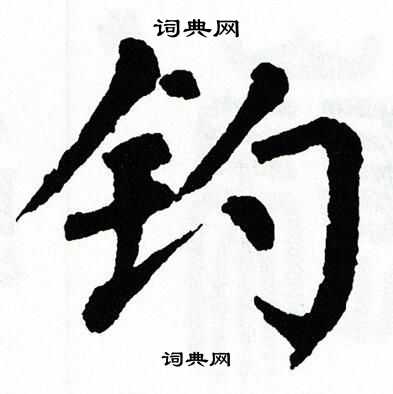 词典网
钓
词典网